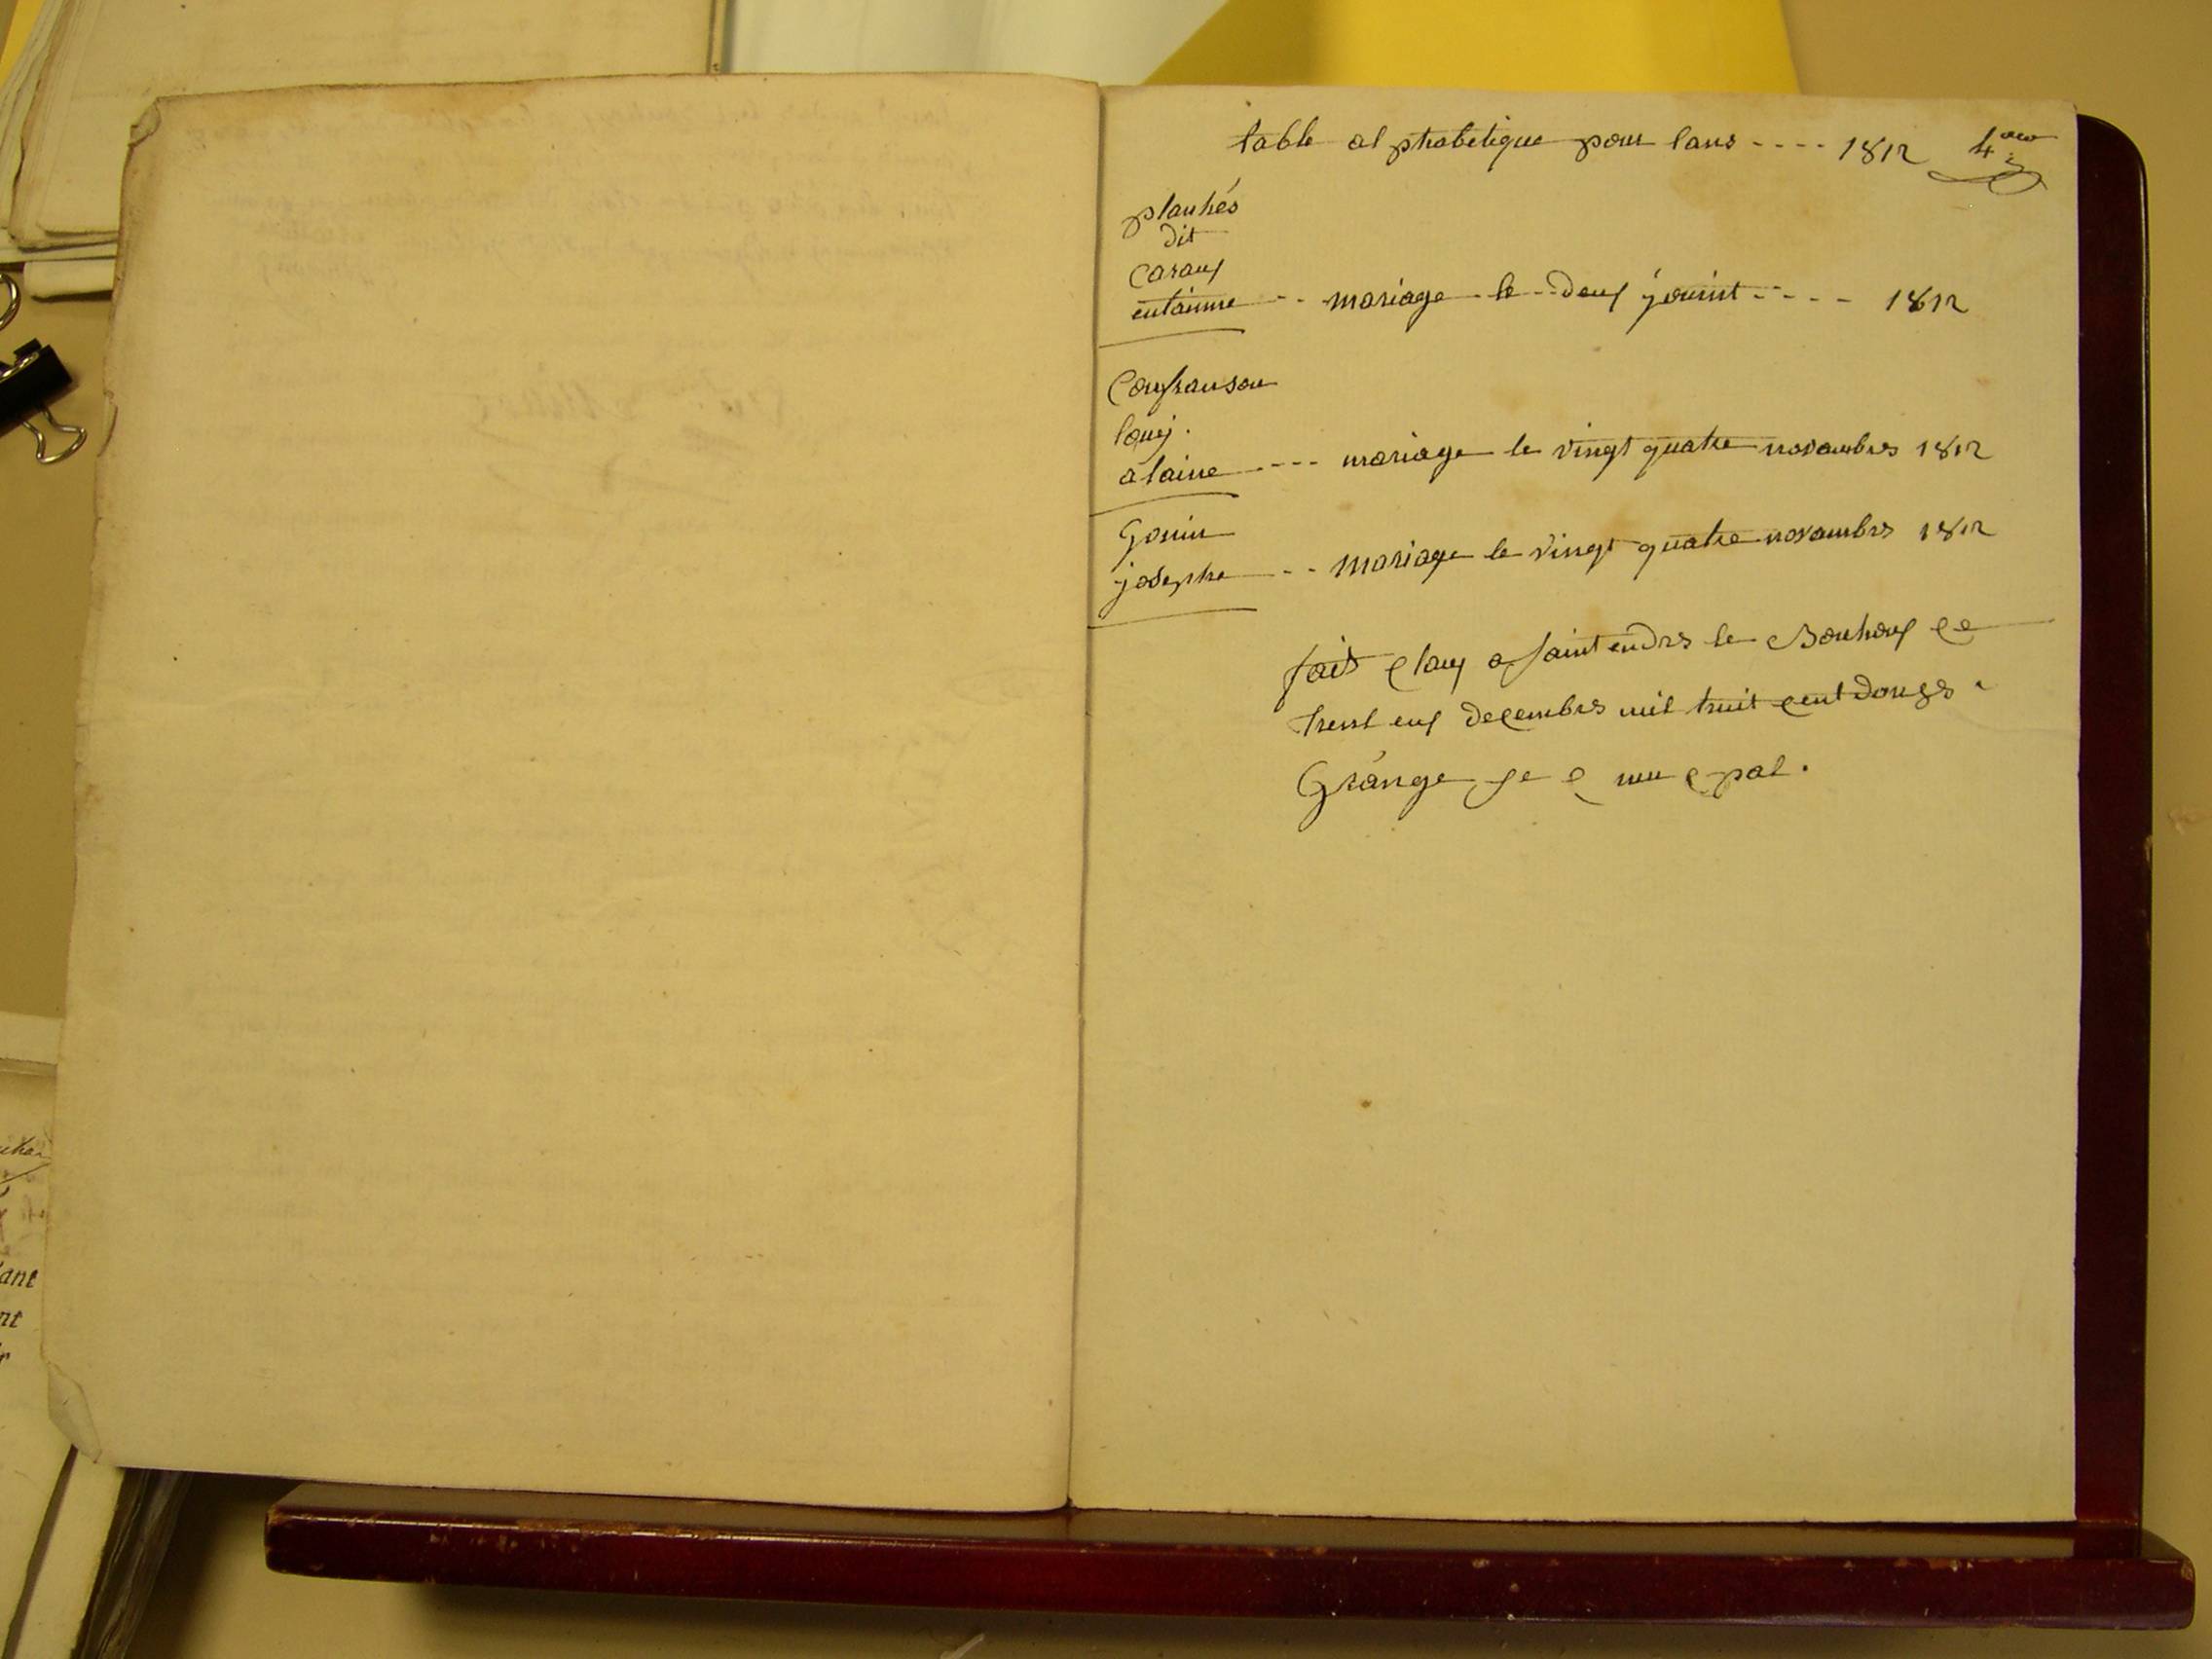 table alphabetique pour lans ---- 1812 4
planhés
dit
Caraux
entainne -- mariage le deux jouint ---- 1812
Coufranson
louij.
alaine ---- mariage le vingt quatre novambres 1812
Gonin
josephe -- mariage le vingt quatre novambres 1812
fait e lauy a saint endres le Bouhoux ce
trent eux decembres mil huit cent douzes.
Grange
ant
nt
r